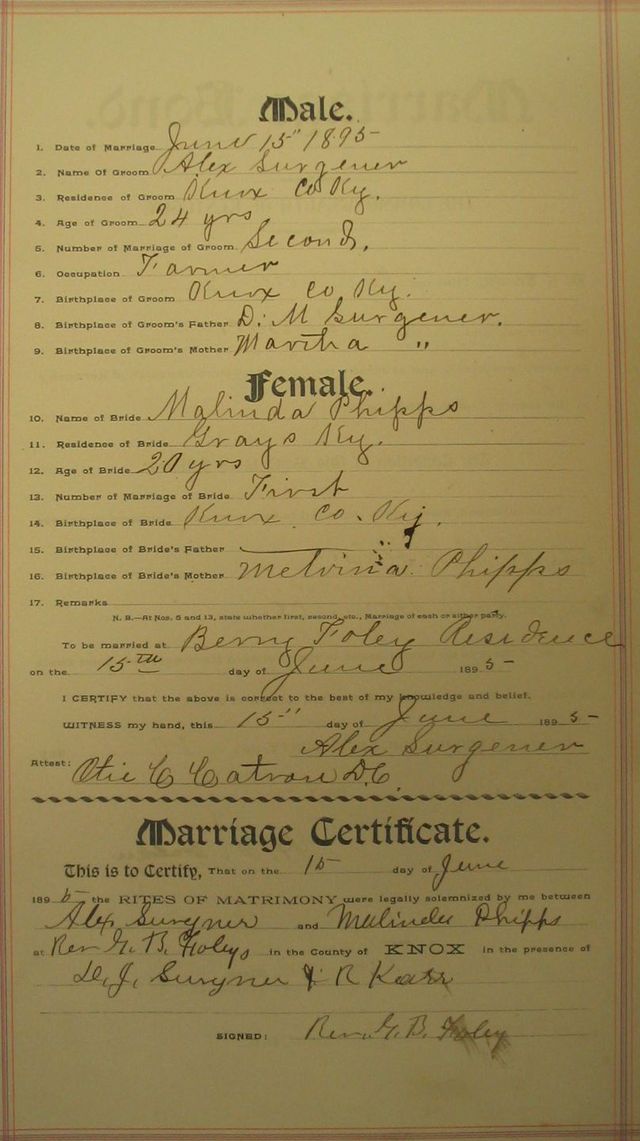 Male.
1. Date of Marriage June 15" 1895
2. Name Of Groom Alex Surgener
3. Residence of Groom Knox Co Ky.
4. Age of Groom 24 yrs
5. Number of Marriage of Groom Second.
6. Occupation Farmer
7. Birthplace of Groom Knox Co Ky.
8. Birthplace of Groom's Father D. M Surgener.
9. Birthplace of Groom's Mother Martha "
Female.
10. Name of Bride Malinda Phipps
11. Residence of Bride Grays Ky.
12. Age of Bride 20 yrs
13. Number of Marriage of Bride First
14. Birthplace of Bride Knox Co. Ky.
15. Birthplace of Bride's Father
16. Birthplace of Bride's Mother Melvina Phipps
17. Remarks
N. B.—At Nos. 5 and 13, state whether first, second, etc., Marriage of each or either party.
To be married at Foley Residence
on the 15TH day of June 1895-
I CERTIFY that the above is correct to the best of my knowledge and belief.
WITNESS my hand, this 15" day of June 1895-
Alex Surgener
Attest: Otie C Catron D.C.
Marriage Certificate.
This is to Certify, That on the 15 day of June
1895 the RITES OF MATRIMONY were legally solemnized by me between
Alex Surgner and Malinda Phipps
at Rev G. B. Foleys in the County of KNOX in the presence of
D. J. Surgner & R Karr
SIGNED: Rev. G. B. Foley